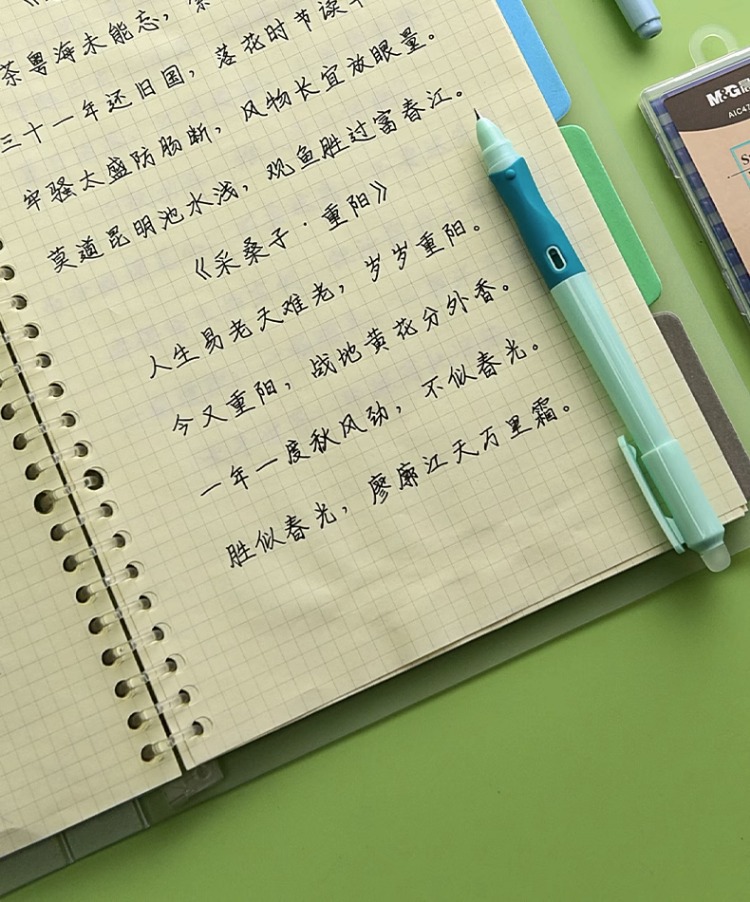 茶粤海未能忘，
三十一年还旧国，落花时节读
牢骚太盛防肠断，风物长宜放眼量。
莫道昆明池水浅，观鱼胜过富春江。
《采桑子·重阳》
人生易老天难老，岁岁重阳。
今又重阳，战地黄花分外香。
一年一度秋风劲，不似春光。
胜似春光，廖廓江天万里霜。
M&G